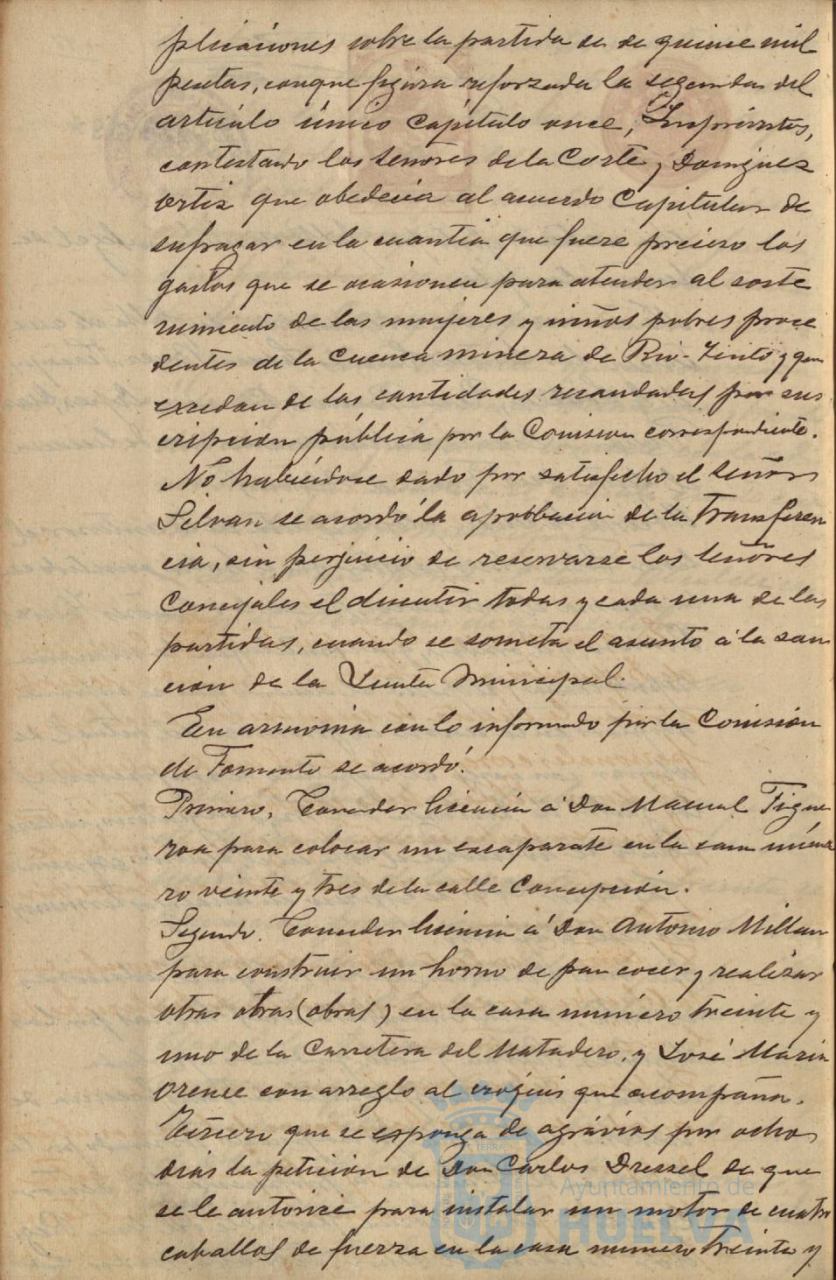 plicaciones sobre la partida de de quince mil
pesetas, conque figura reforzada la segunda del
artículo único Capítulo once, Imprevistos,
contestando los señores de la Corte y Dominguez
Ortiz que obedecia al acuerdo Capitular de
sufragar en la cuantia que fuere preciso los
gastos que se ocasionen para atender al soste
nimiento de las mujeres y niños pobres proce
dentes de la cuenca minera de Rio-Tinto y que
excedan de las cantidades recaudadas por sus
cripcion pública por la Comision correspondiente.
No habiéndose dado por satisfecho el señor
Silvan se acordó la aprobacion de la Transferen
cia, sin perjuicio de reservarse los señores
Concejales el discutir todas y cada una de las
partidas, cuando se someta el asunto á la san
cion de la Junta Municipal.
En armonia con lo informado por la Comision
de Fomento se acordó:
Primero, Conceder licencia á Don Manuel Figue
roa para colocar un escaparate en la casa núme
ro veinte y tres de la calle Concepción.
Segundo. Conceder licencia á Don Antonio Millan
para construir un horno de pan cocer y realizar
otras otras (obras) en la casa número treinta y
uno de la Carretera del Matadero, y José Maria
Orence con arreglo al cróquis que acompaña.
Tercero que se esponga de agrávios por ocho
dias la petición de Don Carlos Dressel de que
se le autorice para instalar un motor de cuatro
caballos de fuerza en la casa numero treinta y
Ayuntamiento de
HUELVA